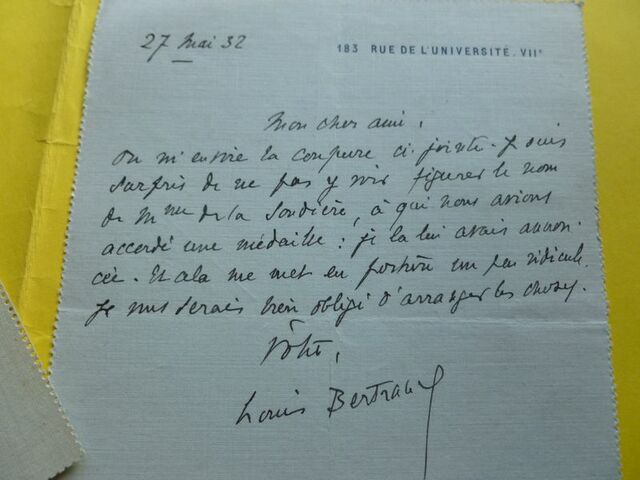 27 Mai 32
183 RUE DE L'UNIVERSITÉ. VIIe
Mon cher ami,
On m'envoie la coupure ci-jointe. Je suis
surpris de ne pas y voir figurer le nom
de Mme de la Soudière, à qui nous avions
accordé une médaille : je la lui avais annon-
cée. Et cela me met en posture un peu ridicule.
Je vous serais bien obligé d'arranger les choses.
Vôtre,
Louis Bertrand